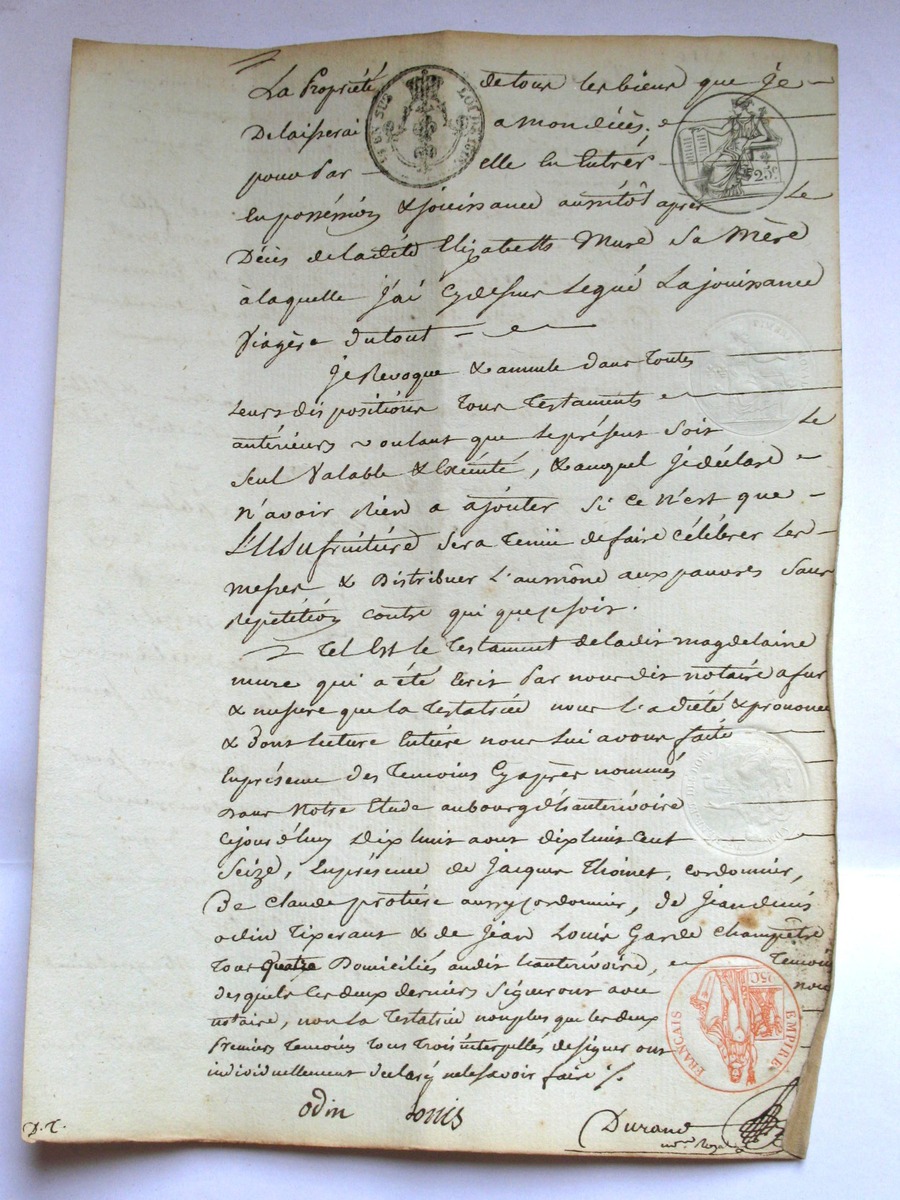 La Propriété de tous les biens que je
Delaisserai a mon décès,
pour Par elle en Entrer
En possession & jouissance aussitôt après Le
Décès de ladite Elizabeth Mure Sa Mère
à laquelle j'ai Cydessus Légué La jouissance
Viagère du tout
Je Revoque & annulle dans Toutes
Leurs dispositions Tous Testaments
antérieurs voulant que le présent soit Le
Seul Valable & Exécuté, & auquel je déclare
N'avoir Rien a ajouter Si ce N'est que
L'Usufruitière sera Tenue de faire célébrer Les
Messes & Distribuer L'aumône aux pauvres Sans
Répétition contre qui que ce soit.
Tel Est le Testament de ladite magdelaine
mure qui a été Ecrit Par nous dit notaire a fur
& mesure que la Testatrice nous l'a dicté & prononcé
& dont lecture Entière nous Lui avons faite
En présence des Temoins Cyaprès nommés
dans Notre Etude au bourg d'hauterivoire
Cejourd'huy Dix huit aout dix huit Cent
Seize, En présence de Jacques Thoinet, cordonnier,
De Claude protière aussy cordonnier, de Jean denis
odin Tixerant & de Jean Louis Garde Champêtre
Tous Quatre Domiciliés audit hauterivoire, Temoins
desquels Les deux derniers Signeront avec nous
notaire, non la Testatrice non plus que les deux
Premiers Temoins Tous Trois interpellés de signer ont
individuellement declaré ne le savoir faire
odin Louis
Durand
D.T.
EN SUS
LOI DE 1816
25c
EMPIRE FRANÇAIS